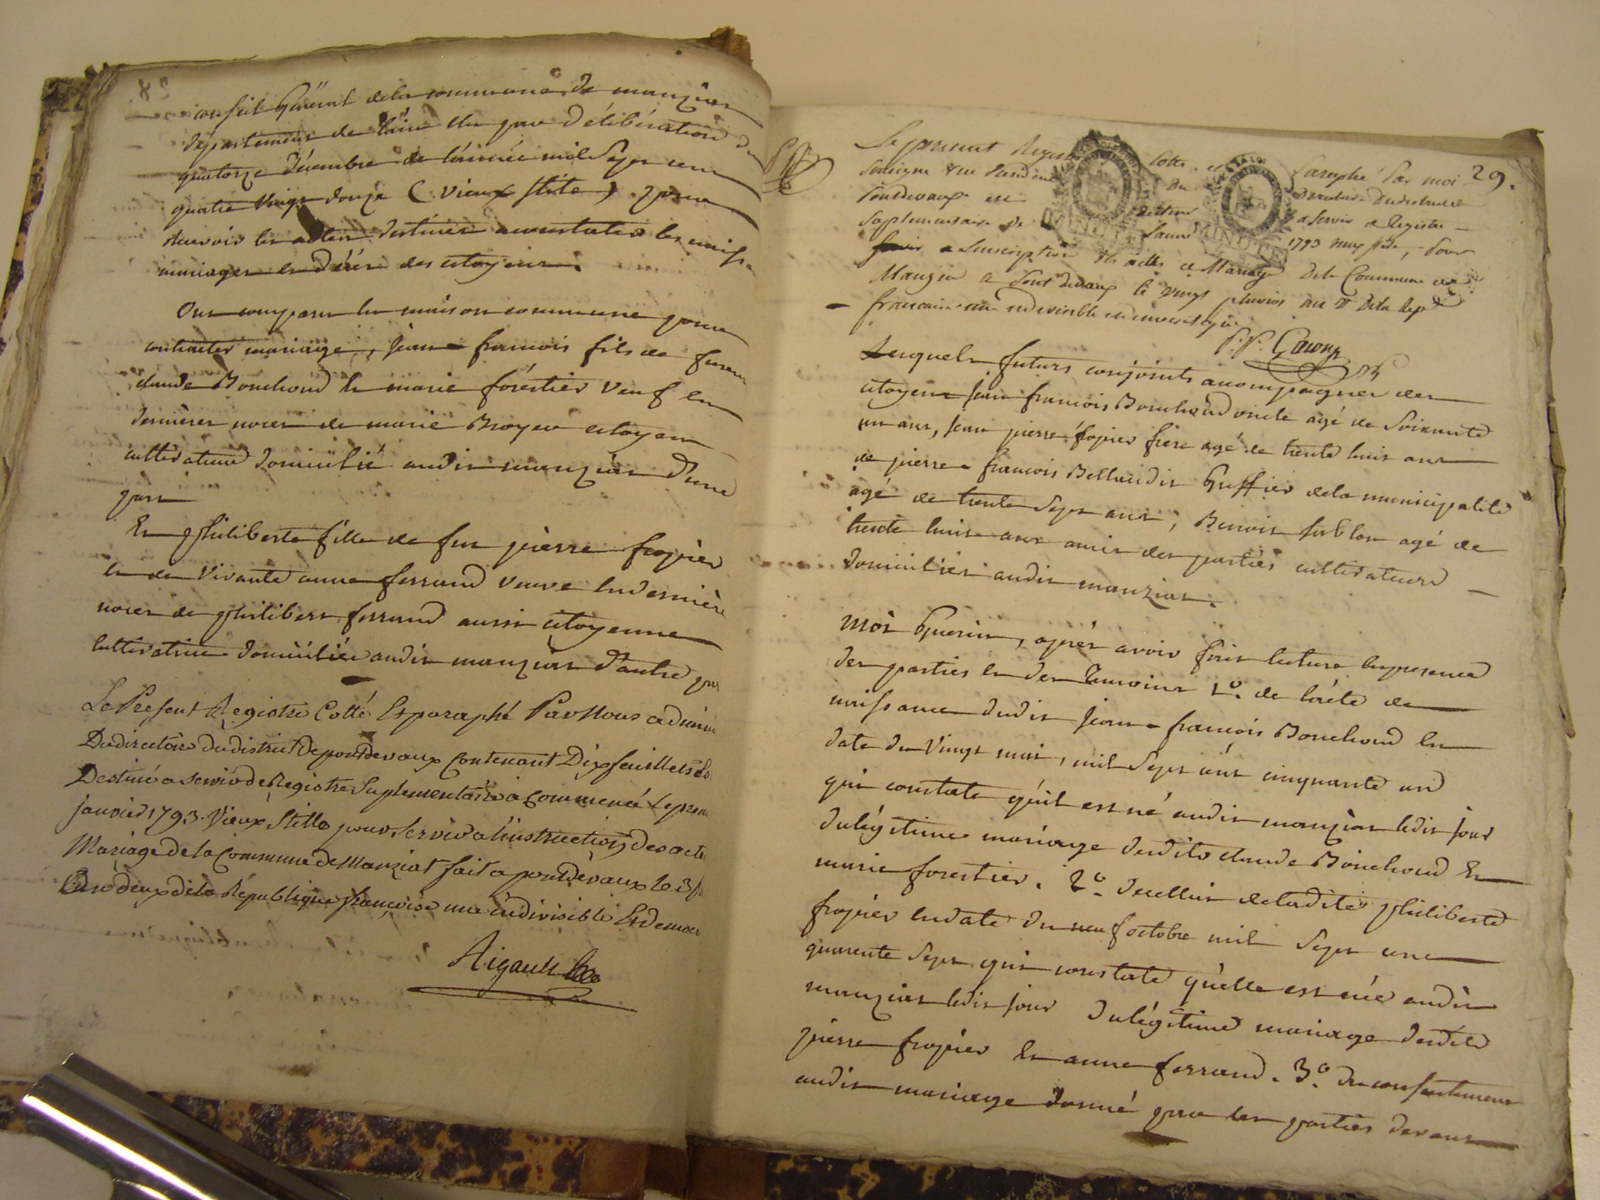 conseil général de la commune de manziat
département de l'ain élu par délibération du
quatorze décembre de l'année mil sept cent
quatre vingt douze ( vieux stile ) pour
recevoir les actes destinés a constater les naissa
mariages et décès des citoyens.
Ont comparu en maison commune pour
contracter mariage, jean francois fils de feu
claude Bouchoud et marie forêstier veuf en
dernieres noces de marie Broyer citoyen
cultivateur domicilié audit manziat d'une
part
Et philiberte fille de feu pierre fropier
et de vivante anne ferrand veuve en derniere
noces de philibert ferrand aussi citoyenne
cultivatrice domiciliée audit manziat d'autre par
Le Present Registre Cotté Et paraphé Par Nous
Du directoire du district de pontdevaux Contenant Dix feuillets
Destiné a servir de Registre Suplementaire a Commencé Le premi
janvier 1793. Vieux Stille pour servir a l'instruction des acte
Mariage de la Commune de Manziat fait a pontdevaux le 3
deux de la République françoise une indivisible Et democ
Rigault
29.
Le present Regis cotté et Paraphé Par moi
Soussigné du Directoire
Pontdevaux
Suplementaire de 1793 pour
Servir a Linscription des actes de Mariage de la Commune de
Manziat a Pont devaux le vingt pluvios an 2 de la Rep
francaise une indivisible
Lesquels futurs conjoints acompagnés des
citoyens Jean francois Bouchoud oncle agé de soixante
un ans, Jean pierre fropier frère agé de trente huit ans
de pierre francois Bellaudit Greffier de la municipalité
agé de trente sept ans, Benoit sablon agé de
trente huit ans amis des parties cultivateurs
domiciliés audit manziat.
Moi Guerin, après avoir fait lecture en presence
des parties et des Temoins 1o. de l'acte de
naissance dudit jean francois Bouchoud en
date du vingt mai, mil sept cent cinquante un
qui constate qu'il est né audit manziat ledit jour
du légitime mariage desdits claude Bouchoud Et
marie forestier. 2o. de celluis de ladite philiberte
fropier en date du neuf octobre mil sept cent
quarente sept qui constate qu'elle est née audit
manziat ledit jour du légitime mariage desdits
pierre fropier Et anne ferrand. 3o. du consentement
audit mariage donné par les parties devant